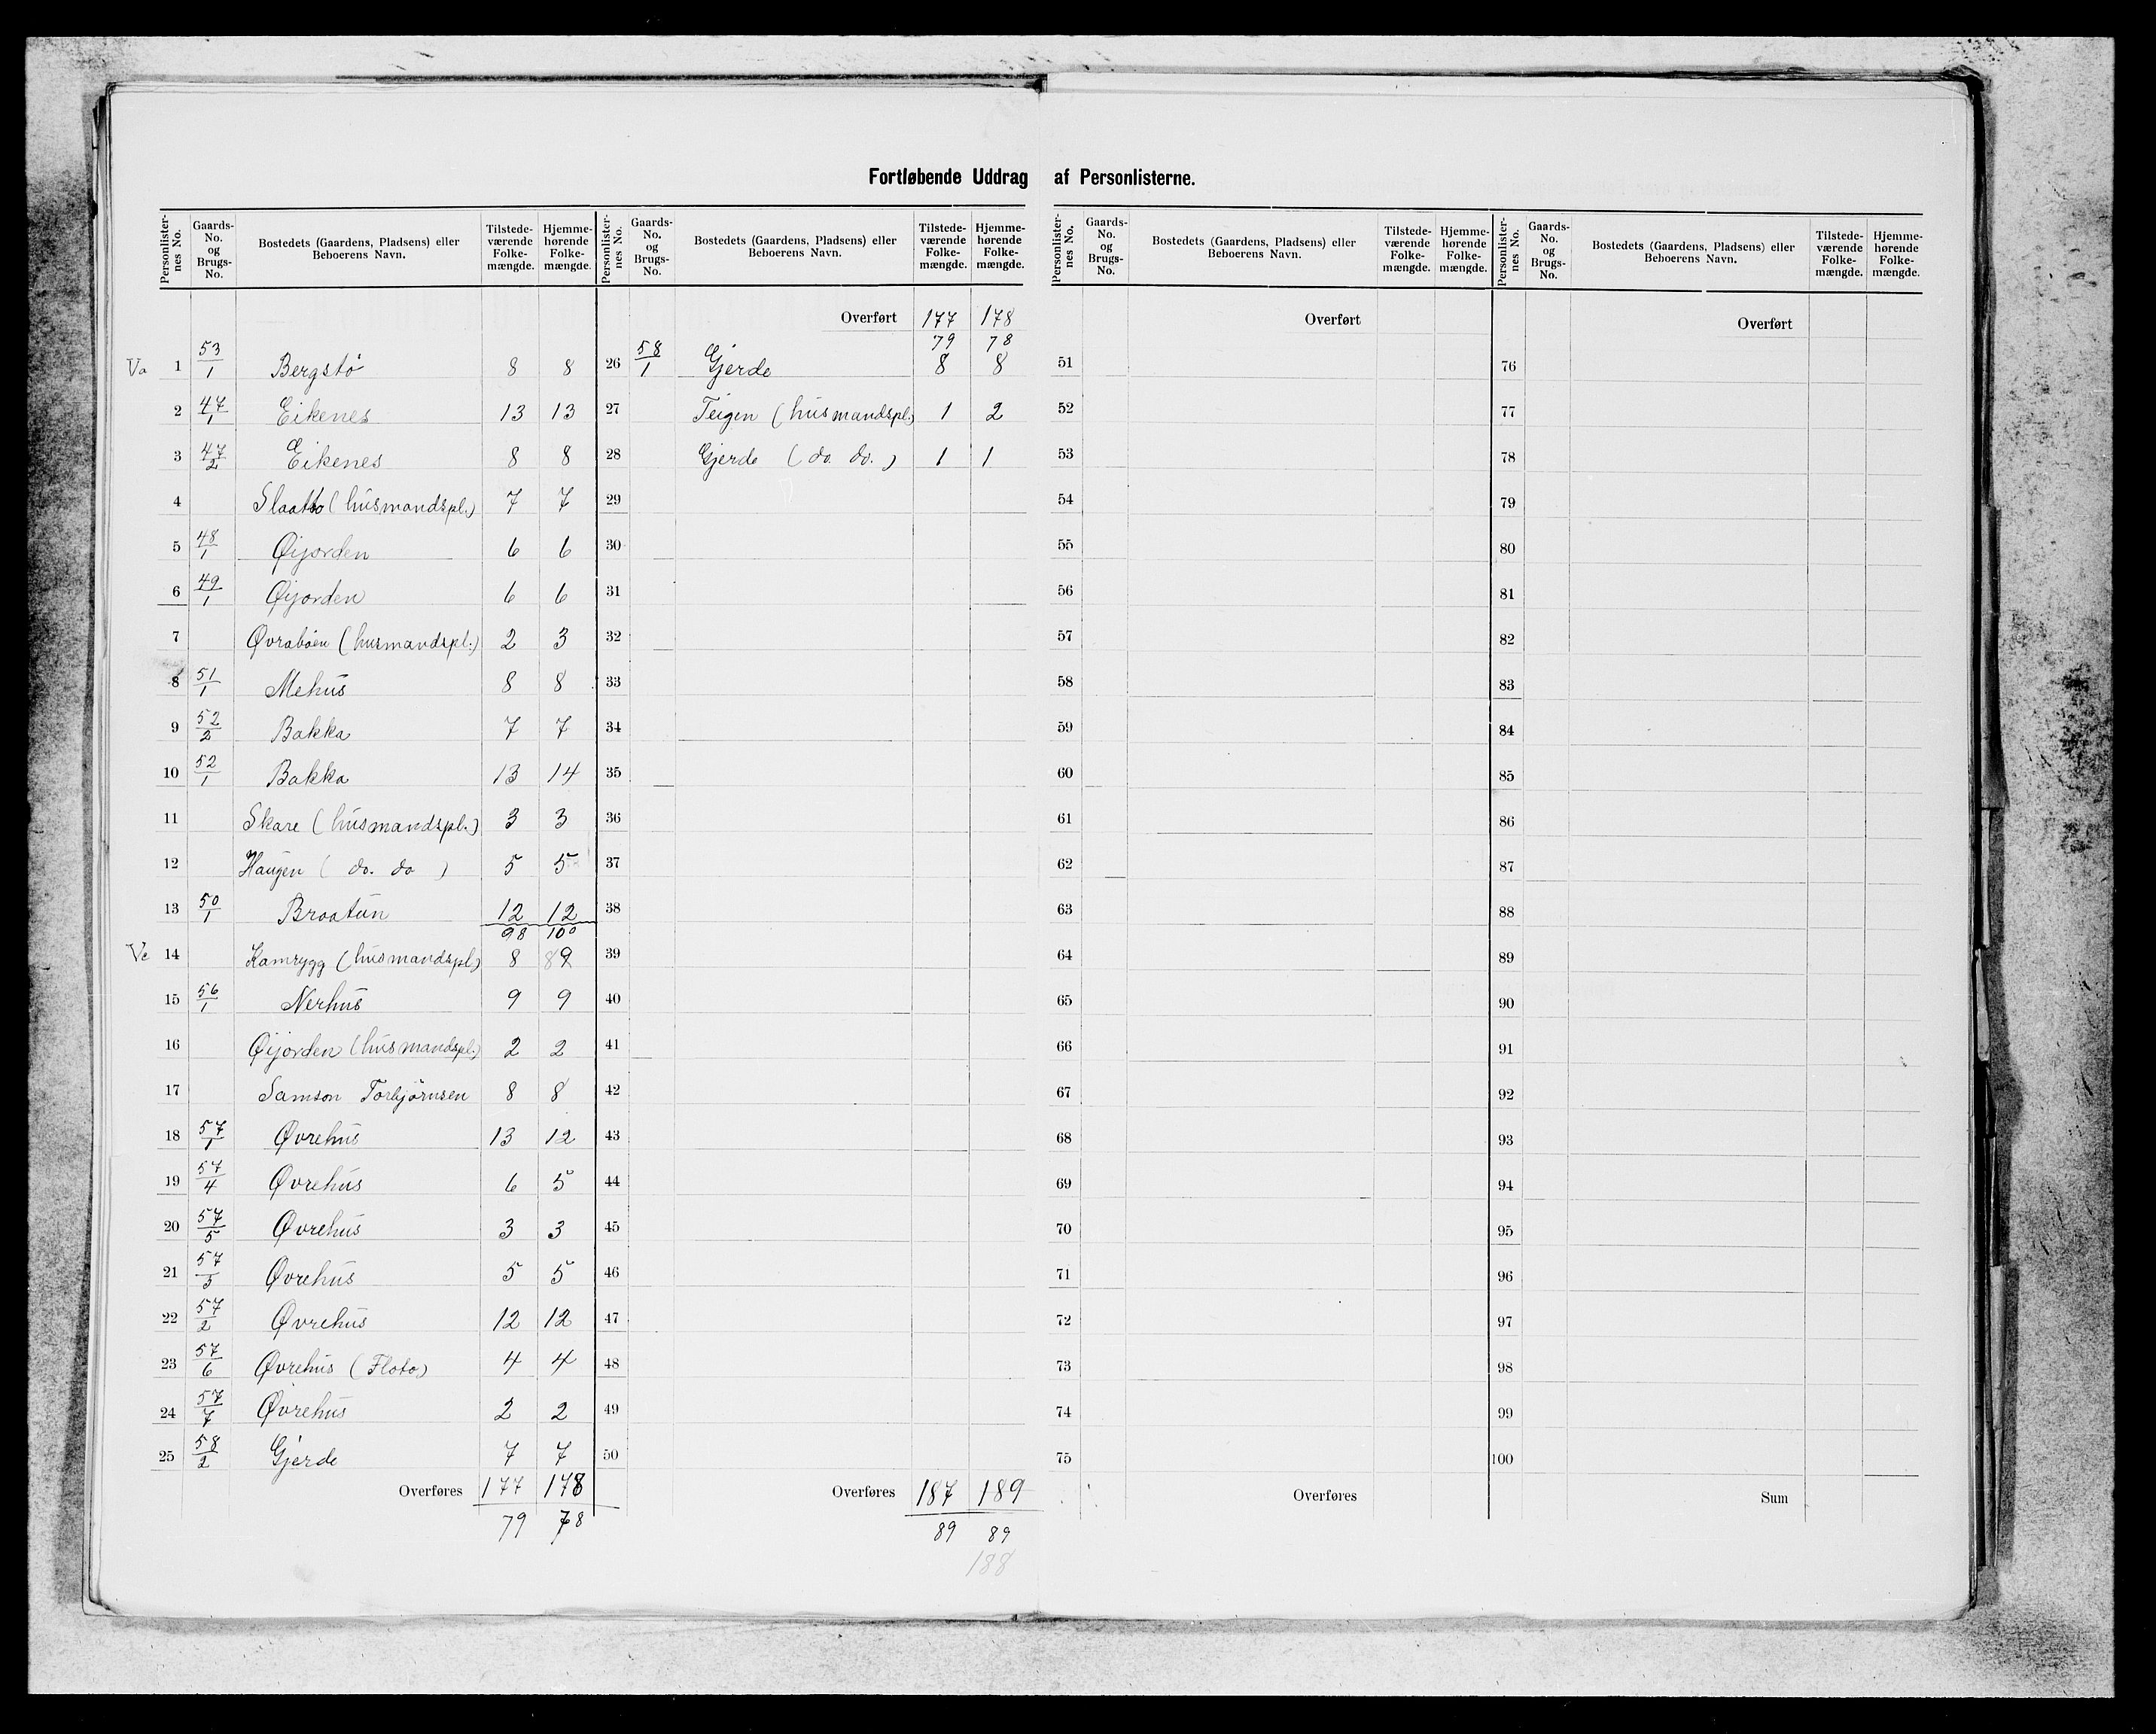 Fortløbende Uddrag af Personlisterne.
Personlister-nes No. | Gaards-No. og Brugs-No. | Bostedets (Gaardens, Pladsens) eller Beboerens Navn. | Tilstede-værende Folke-mængde. | Hjemme-hørende Folke-mængde.
Va 1 53/1 Bergstö 8 8
2 47/1 Eikenes 13 13
3 47/2 Eikenes 8 8
4 Slaatto (husmandspl.) 7 7
5 48/1 Øijorden 6 6
6 49/1 Øijorden 6 6
7 Øvraböen (husmandspl.) 2 3
8 51/1 Mehus 8 8
9 52/2 Bakka 7 7
10 52/1 Bakka 13 14
11 Skare (husmandspl.) 3 3
12 Haugen ( do. do ) 5 5
13 50/1 Braatun 12 12
98 100
Vc 14 Kamrygg (husmandspl.) 8 8 9
15 56/1 Nerhus 9 9
16 Øijorden (husmandspl.) 2 2
17 Samson Torbjörnsen 8 8
18 57/1 Øvrehus 13 12
19 57/4 Øvrehus 6 5
20 57/5 Øvrehus 3 3
21 57/3 Øvrehus 5 5
22 57/2 Øvrehus 12 12
23 57/6 Øvrehus (Flato) 4 4
24 57/7 Øvrehus 2 2
25 58/2 Gjerde 7 7
Overføres 177 178
79 78
Personlister-nes No. | Gaards-No. og Brugs-No. | Bostedets (Gaardens, Pladsens) eller Beboerens Navn. | Tilstede-værende Folke-mængde. | Hjemme-hørende Folke-mængde.
Overført 177 178
79 78
26 58/1 Gjerde 8 8
27 Teigen (husmandspl.) 1 2
28 Gjerde (do. do.) 1 1
29
30
31
32
33
34
35
36
37
38
39
40
41
42
43
44
45
46
47
48
49
50
Overføres 187 189
89 89
188
Personlister-nes No. | Gaards-No. og Brugs-No. | Bostedets (Gaardens, Pladsens) eller Beboerens Navn. | Tilstede-værende Folke-mængde. | Hjemme-hørende Folke-mængde.
Overført
51
52
53
54
55
56
57
58
59
60
61
62
63
64
65
66
67
68
69
70
71
72
73
74
75
Overføres
Personlister-nes No. | Gaards-No. og Brugs-No. | Bostedets (Gaardens, Pladsens) eller Beboerens Navn. | Tilstede-værende Folke-mængde. | Hjemme-hørende Folke-mængde.
Overført
76
77
78
79
80
81
82
83
84
85
86
87
88
89
90
91
92
93
94
95
96
97
98
99
100
Sum